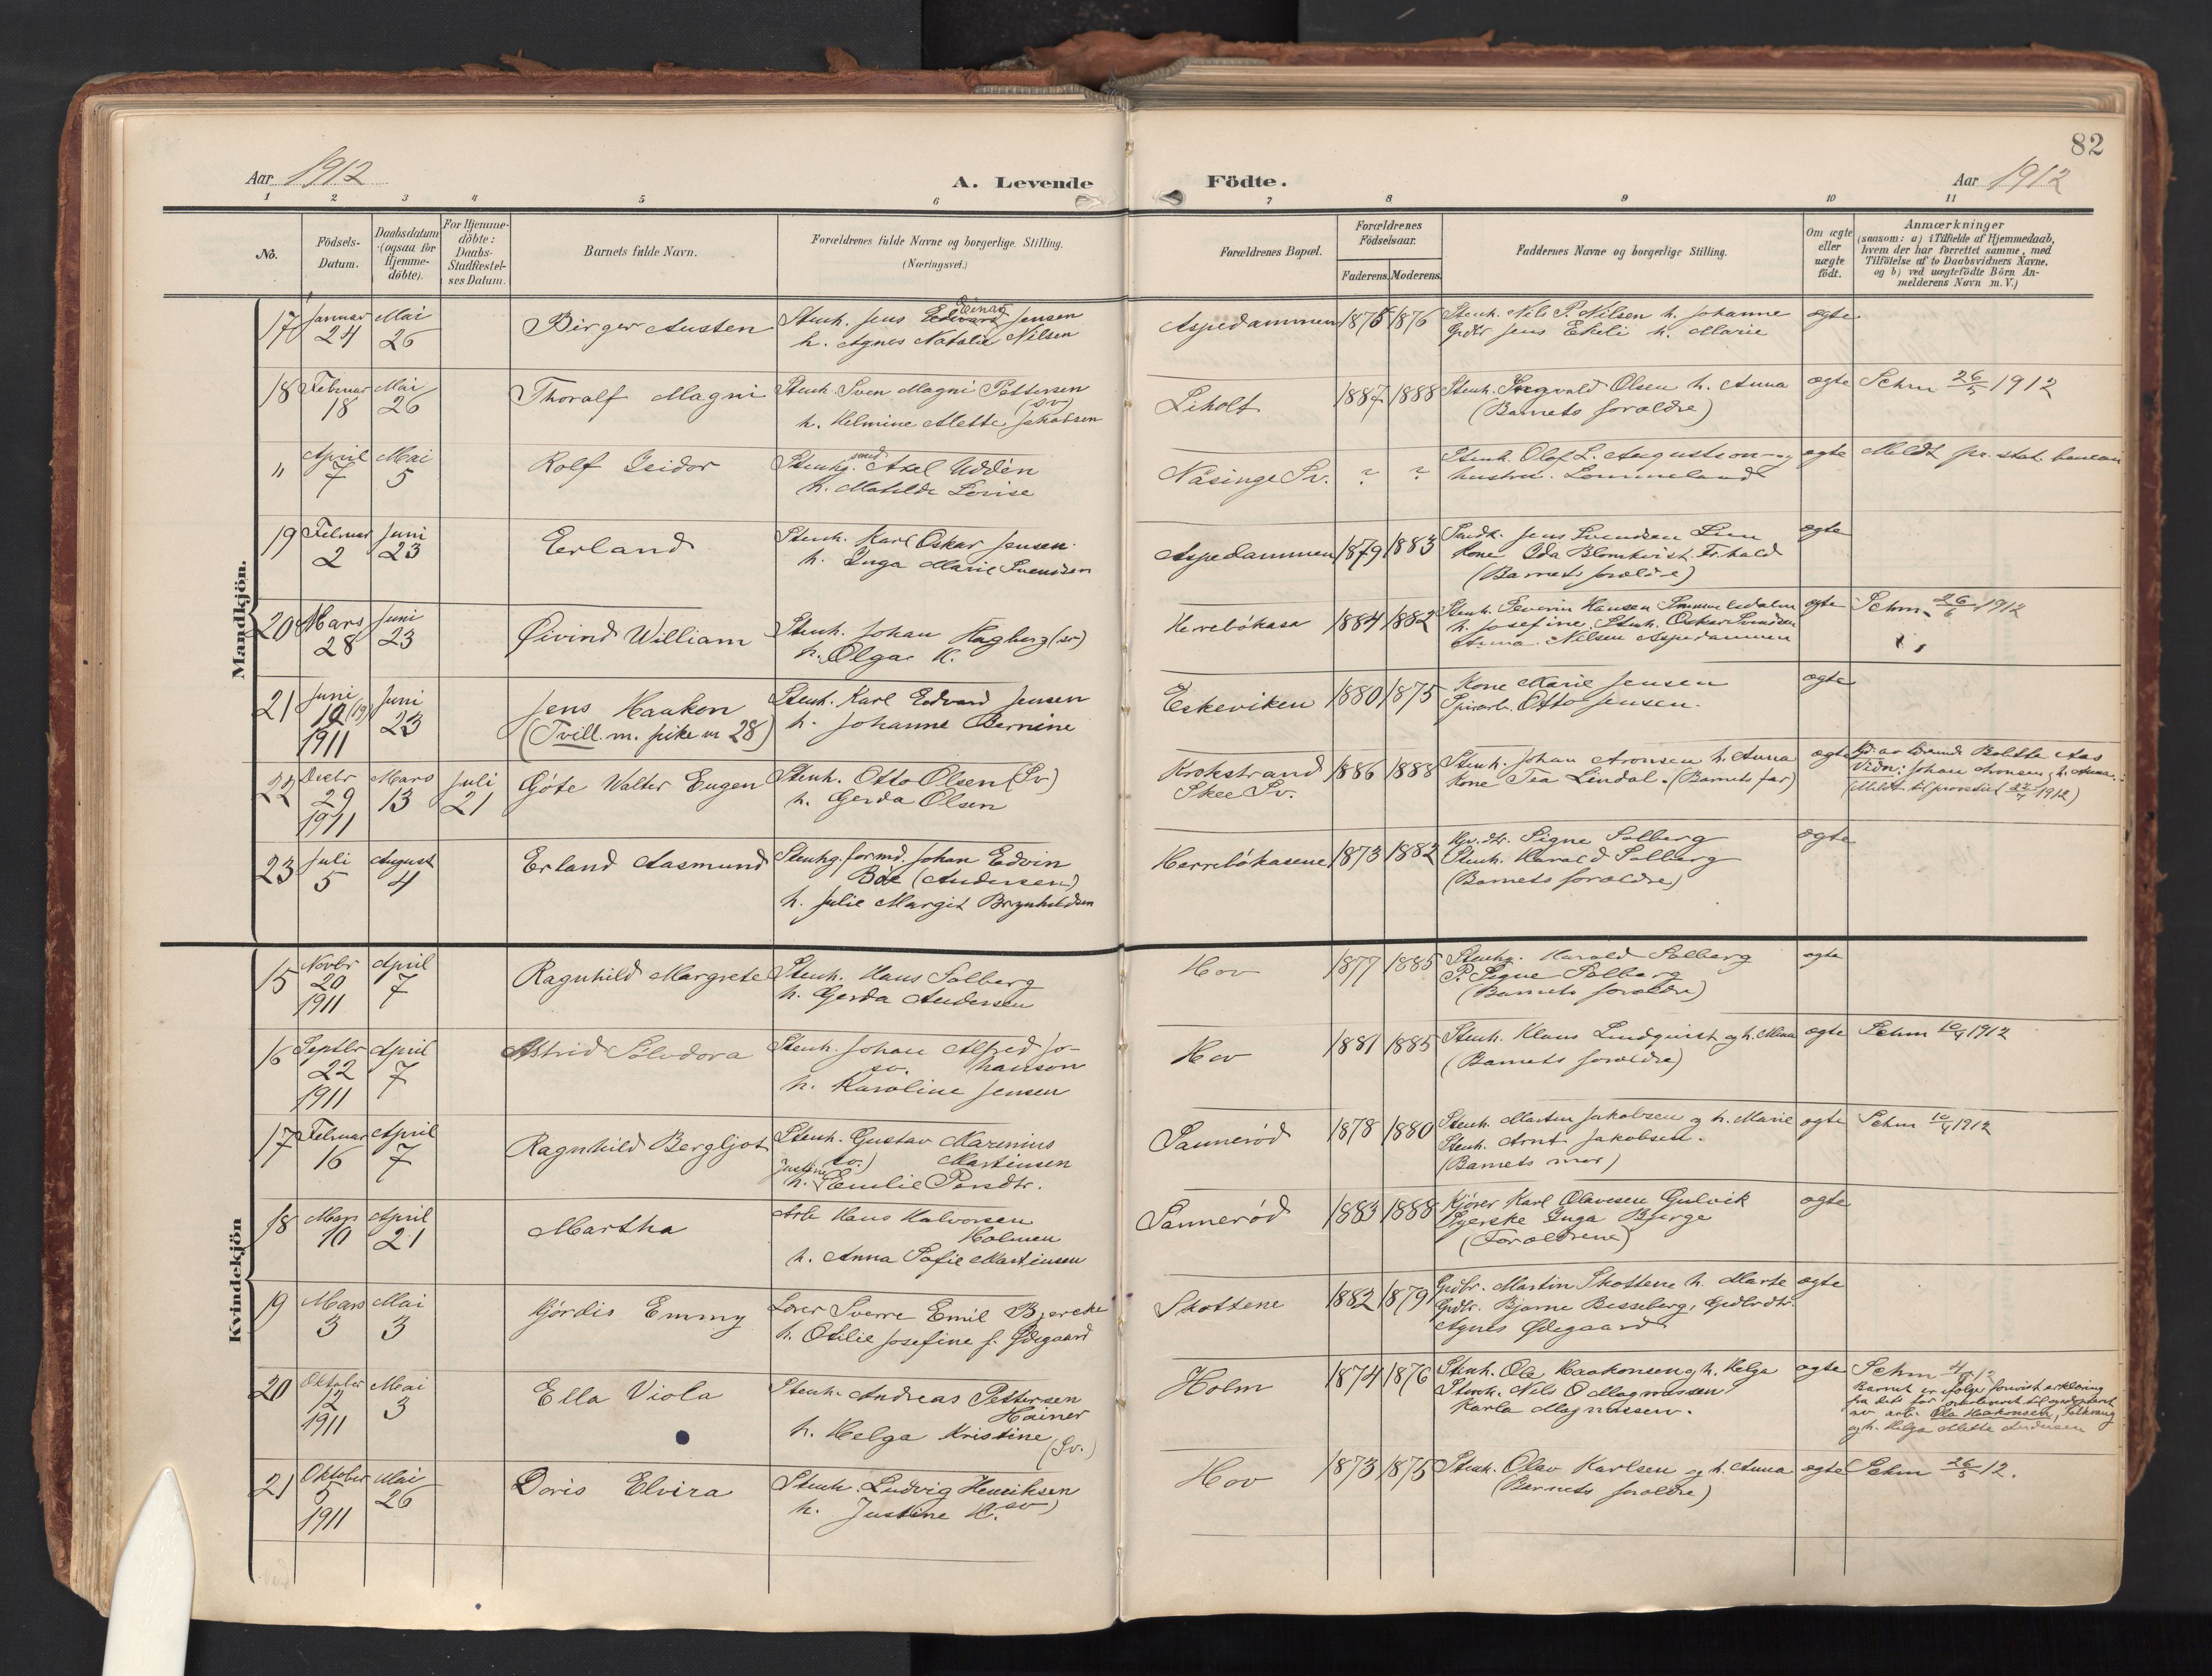 82
Aar 1912
A. Levende
Födte.
Aar 1912
1 2 3 4 5 6 7 8 9 10 11
No.
Födsels-
Datum.
Daabsdatum
(ogsaa for
Hjemme-
döbte).
For Hjemme-
döbte:
Daabs-
Stadfæstel-
ses Datum.
Barnets fulde Navn.
Forældrenes fulde Navne og borgerlige Stilling.
(Næringsvei.)
Forældrenes Bopæl.
Forældrenes
Födselsaar.
Faderens. Moderens.
Faddernes Navne og borgerlige Stilling.
Om ægte
eller
uægte
födt.
Anmærkninger
(saasom: a) i Tilfælde af Hjemmedaab,
hvem der har forrettet samme, med
Tilföielse af to Daabsvidners Navne,
og b) ved uægtefödte Börn An-
melderens Navn m. V.)
Mandkjön.
17 Januar 24 Mai 26
Birger Austen
Stenh. Jens Edvard Einar Jensen
h. Agnes Natalie Nilsen
Aspedammen 1875 1876
Stenh. Nils P. Nilsen h. Johanne
Grdbr Jens Ekeli h. Marie
ægte
18 Februar 18 Mai 26
Thoralf Magni
Stenh. Sven Magni Pettersen
(sv)
h. Helmine Alette Jakobsen
Liholt 1887 1888
Stenh. Ingvald Olsen h. Anna
(Barnets forældre)
ægte
Sehm 26/5 1912
" April 7 Mai 5
Rolf Geidor
Stenhg. smed Axel Uddén
h. Matilde Lovise
Näsinge Sv. ? ?
Stenh. Olof L. Augustson og
hustru. Lommeland
ægte
Meldt pr. stat. bureau
19 Februar 2 Juni 23
Erland
Stenh. Karl Oskar Jensen
h. Inga Marie Svendsen
Aspedammen 1879 1883
Jens Svendsen Lun
Kone Ida Blomkvist. Fr.hald
(Barnets forældre)
ægte
20 Mars 28 Juni 23
Øivind William
Stenh. Johan Hagberg (sv)
h. Olga K.
Herrebökasa 1884 1882
Stenh. Severin Hansen
h. Josefine. Stenh. Oskar Svendsen
Anna Nilsen Aspedammen
ægte
Sehm. 26/6 1912
21 Juni 12 (13) 1911 Juni 23
Jens Haakon
(Tvill. m. pike nr 28)
Stenh. Karl Edvard Jensen
h. Johanne Bernine
Eskeviken 1880 1875
Kone Marie Jensen
Otto Jensen.
ægte
22 Decbr 29 1911 Mars 13 Juli 21
Göte Walter Eugen
Stenh. Otto Olsen (Sv)
h. Gerda Olsen
Krokstrand
Skee Sv.
1886 1888
Stenh. Johan Aronsen h. Anna
Kone Tea Lindal. (Barnets far)
ægte
Hjd. av Bolette Aas
Vidn: Johan Aronsen, h. Anna.
(Meldt til 22/7 1912)
23 Juli 5 August 4
Erland Aasmund
Stenhg. formd. Johan Edvin
Böe (Andersen)
h. Julie Margit Brynhildsen
Herrebökasene 1873 1882
Signe Solberg
Stenh. Harald Solberg
(Barnets forældre)
ægte
Kvindekjön
15 Novbr 20 1911 April 7
Ragnhild Margrete
Stenh. Hans Solberg
h. Gerda Andersen
Hov 1877 1885
Stenhg. Harald Solberg
P. Signe Solberg
(Barnets forældre)
ægte
16 Septbr 22 1911 April 7
Astrid Solvdora
Stenh. Johan Alfred Jo-
sv. hanson
h. Karoline Jensen
Hov 1881 1885
Stenh. Klaus Lindquist og h. Mina
(Barnets forældre)
ægte
Sehm 10/4 1912
17 Februar 16 April 7
Ragnhild Bergljot
Stenh. Gustav Marinius
sv.) Martinsen
h. Justine Emilie Persdtr.
Sannerød 1878 1880
Stenh. Martin Jakobsen og h. Marie
Stenh. Arnt Jakobsen.
(Barnets mor)
ægte
Sehm 10/4 1912
18 Mars 10 April 21
Martha
Arb Hans Halvorsen
Holmen
h. Anna Sofie Martinsen
Sannerød 1883 1888
Kjører Karl Olavesen Gulvik
Syerske Inga Bjerge
(Forældrene)
ægte
19 Mars 3 Mai 3
Hjördis Emmy
Lærer Sverre Emil Bjercke
h. Otilie Josefine f. Ødegaard
Skottene 1882 1879
Grdbr. Martin Skottene h. Marte
Grdbr. Bjarne Besseberg, Grdbrdtr.
Agnes Ødegaard
ægte
20 Oktober 12 1911 Mai 3
Ella Viola
Stenh. Andreas Pettersen
Hainer
h. Helga Kristine
(Sv.)
Holm 1874 1876
Stenh. Ole Haakonsen og h. Helga
Stenh. Nils O Magnussen
Karla Magnussen.
ægte
Sehm 4/5 12
Barnet er ifølge forevist erklæring
fra dets far
av arb. Ole Haakonsen,
og h. Helga Alette Andersen
21 Oktober 5 1911 Mai 26
Doris Elvira
Stenh. Ludvig Henriksen
sv)
h. Justine H.
Hov 1873 1875
Stenh. Olav Karlsen og h. Anna
(Barnets forældre)
ægte
Sehm 26/5 12.